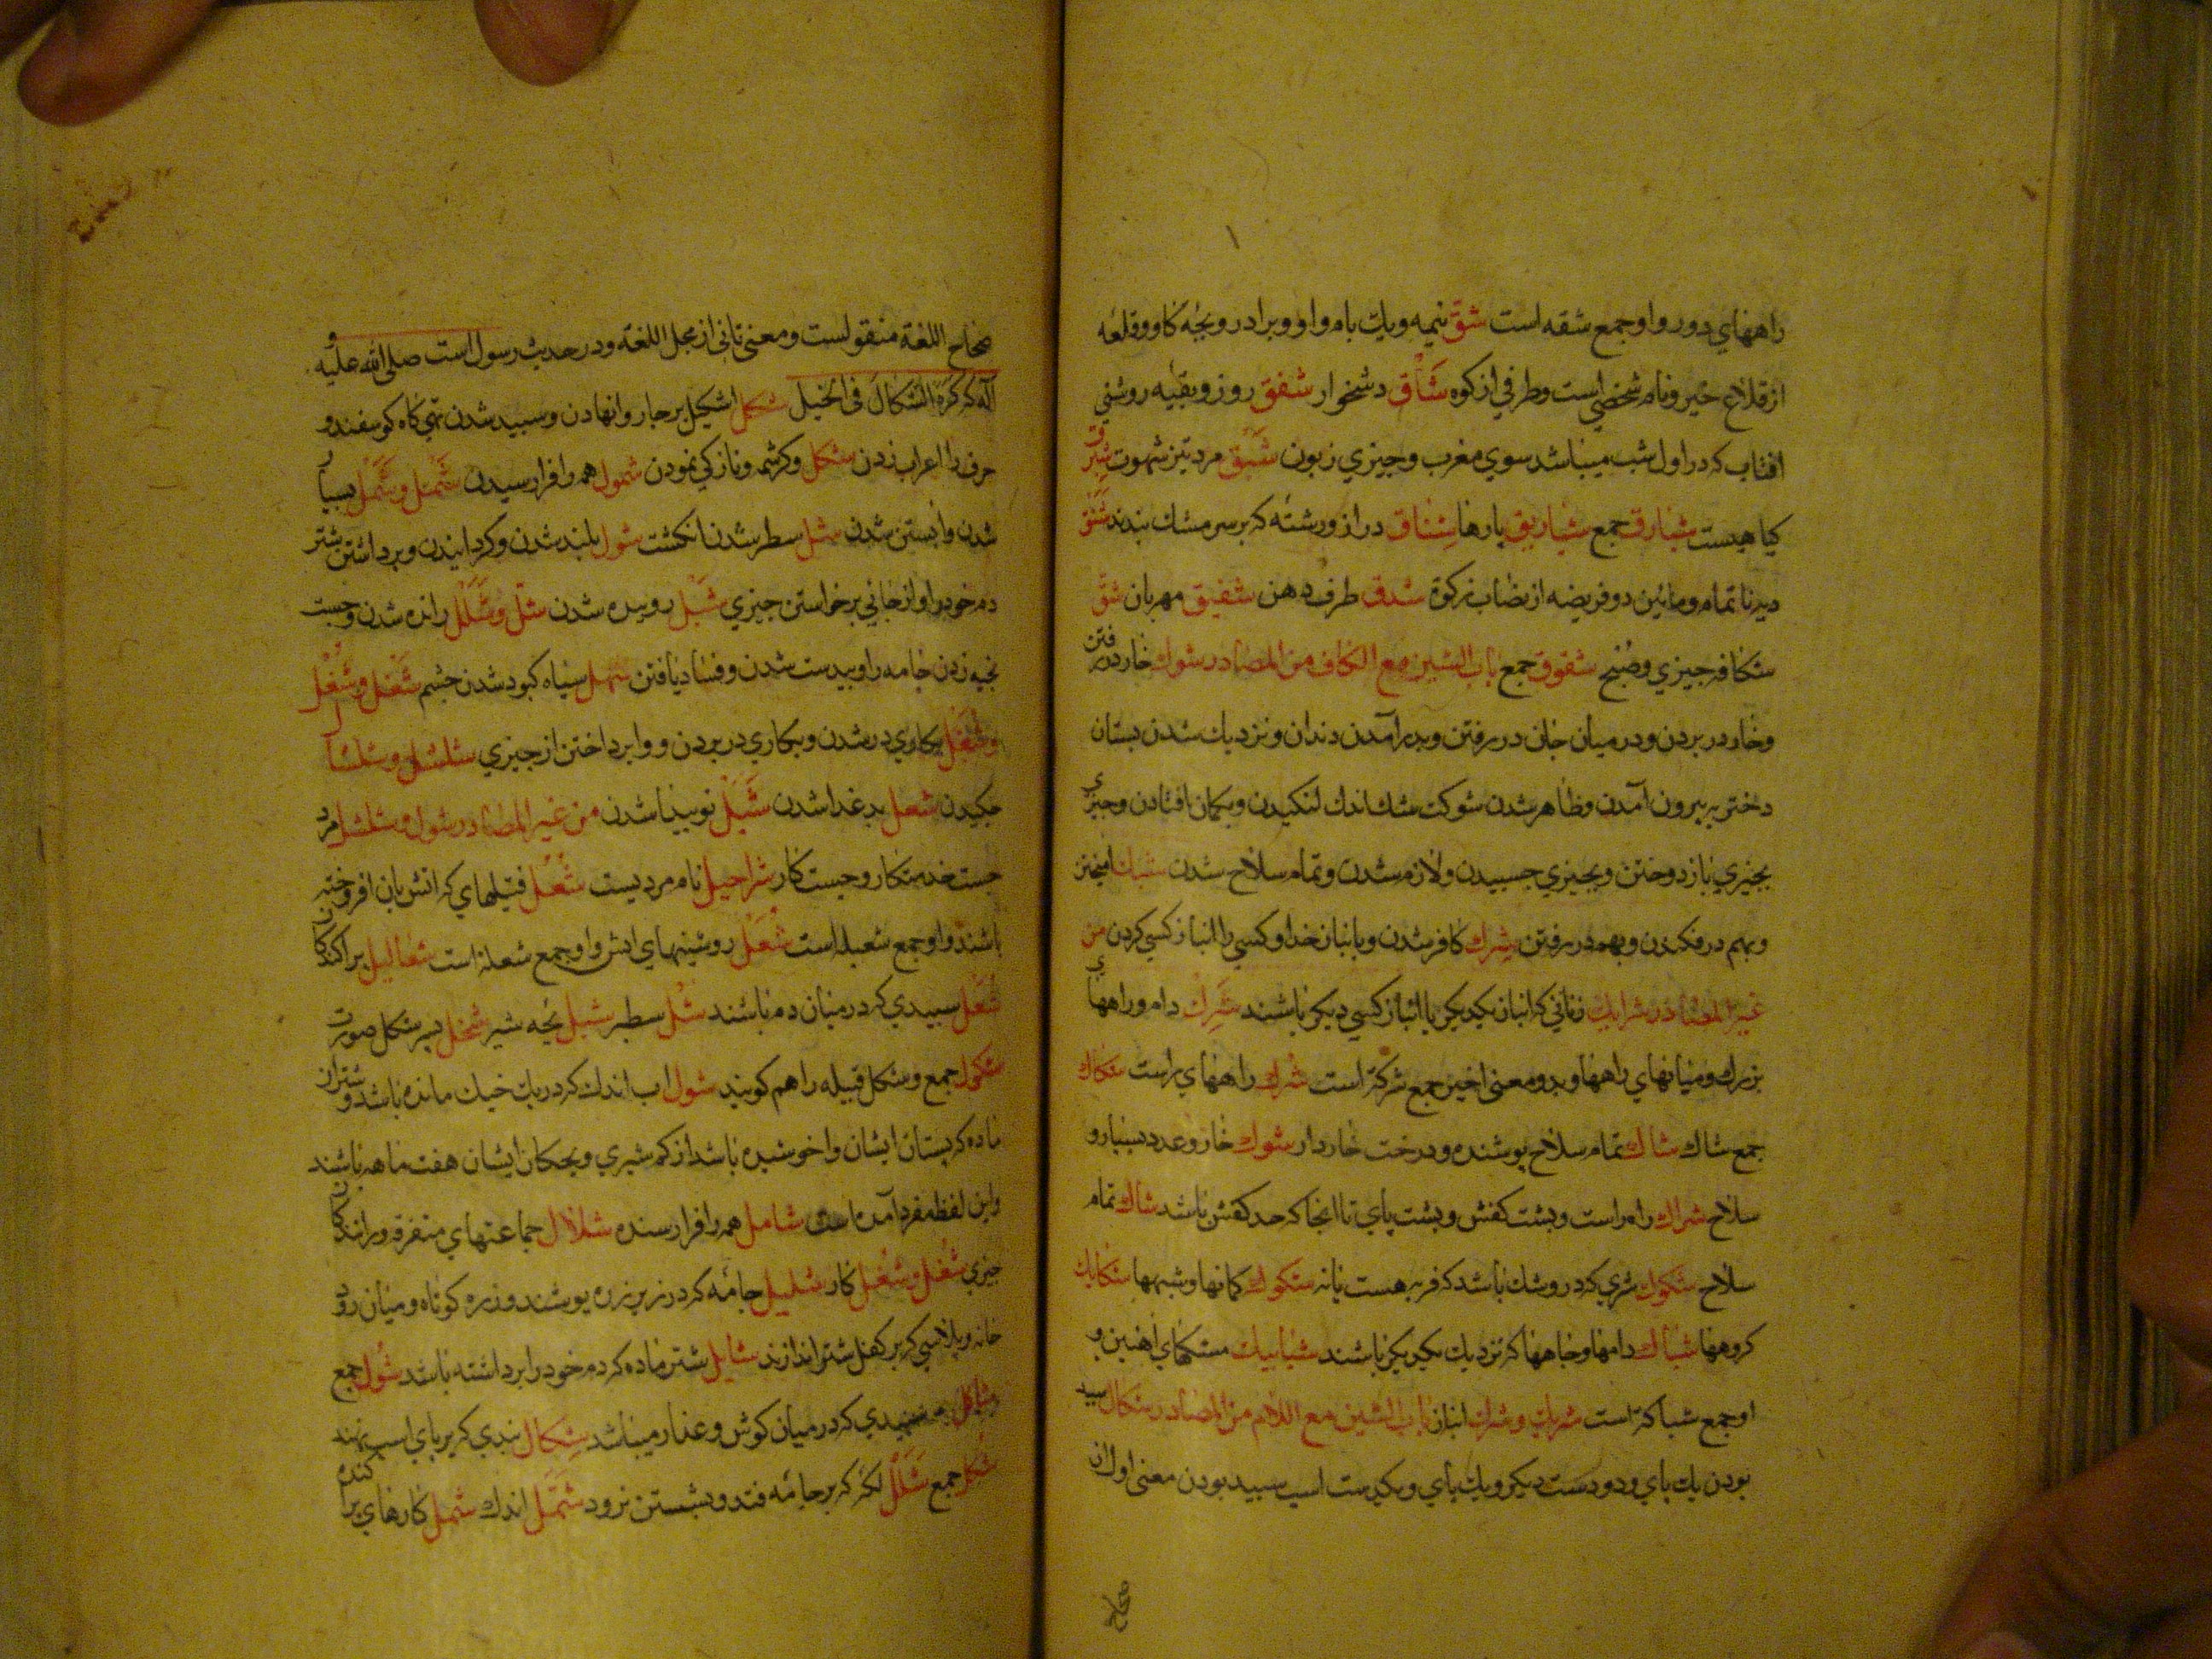 راههاي دور و او جمع شقه است شق نيمه ويك بام و او و برادر و بچۀ كاو و قلعه
از قلاع خيبر ونام شخصي است وطرفي از كوه شاق دشخوار شفق روز و بقيه روشني
افتاب كه در اول شب ميباشد سوي مغرب و چيزي زبون شبق مرد تيز شهوت شبرق
كياهيست شبارق جمع شباريق پارها شناق دراز ورشته كه بر سر مشك بندند شنق
ديه ناتمام وما بين دو فريضه از نصاب زكوة شدق طرف دهن شفيق مهربان شق
شكاف چيزي وصبح شقوق جمع باب الشين مع الكاف من المصادر شوك خار در رفتن
وخار در بردن ودر ميان خار در رفتن وبر آمدن دندان ونزديك شدن پستان
دختر به بيرون آمدن وظاهر شدن شوكت شك اندك لنكيدن وبكمان افتادن وچيزي
بچيزي باز دوختن وبچيزي چسبيدن ولازم شدن وتمام سلاح شدن شبك اميختن
وبهم در فكندن وبهم در رفتن شرك كافر شدن وبا نباز خدا و كسي را انباز كسي كردن من
غير المصادر شرايك زناني كه انباز يكديكر يا انباز كسي ديكر باشند شرك دام و راههاي
بزرك وميانهاي راهها وبدو معني اخير جمع شركة است شرك راههاي راست شكاك
جمع شاك شاك تمام سلاح پوشنده ودرخت خاردار شوك خار وعدد بسيار و
سلاح شراك راه راست وپشت كفش وپشت پاي تا انجا كه حد كفش باشد شاك تمام
سلاح شكوك شتري كه در وشك باشد كه فربه هست يا نه شكوك كمانها وشبهها شكايك
كروهها شباك دامها وجاهها كه نزديك يكديكر باشند شبابيك مشبكهاي اهنين و
او جمع شباكة است شريك وشرك انباز باب الشين مع اللام من المصادر شكال سپيد
بودن يك پاي ودو دست ديكر ويك پاي ويكدست اسب سپيد بودن معنى اول از
صحاح
صحاح اللغة منقولست ومعنى ثاني از مجمل اللغة ودر حديث رسول است صلى الله عليه و
آله كه كره الشكال في الخيل شكل اشكيل بر چاروا نهادن وسپيد شدن تهي كاه كوسفند و
حرف را اعراب زدن شكل وكرشمه ونازكي نمودن شمول همه را فرا رسيدن شمل وشمل بسيار
شدن وابستن شدن شثل سطبر شدن انكشت شول بلند شدن وكردانيدن وبرداشتن شتر
دم خود را و از جائي برخواستن چيزي شبل روييده شدن شل وشلل رانده شدن وچست
بخيه زدن جامه را وبيدست شدن وفساد يافتن شهل سياه كبود شدن چشم شغل وشغل
وشغل بكاري در شدن وبكاري در بردن و وا پرداختن از چيزي شلشل وشلشال
چكيدن شعل بدغدا شدن شيل نوبينا شدن من غير المصادر شول وشلشل مرد
چست خدمتكار وچست كار شراحيل نام مرديست شعل فتيلهاي كه اتش بان افروخته
باشند و او جمع شعيله است شعل روشنيهاي اتش و او جمع شعلة است شعاليل پراكندكان
شعل سپيدي كه در ميان دم باشند شثل سطبر شبل بچه شير شخل پير شكل صورت
شكول جمع وشكل قبيله را هم كويند شول اب اندك كه در يك خيك مانده باشد و شتران
ماده كه پستان ايشان وا خوشيده باشد از كم شيري وبچكان ايشان هفت ماهه باشند
واين لفظ مفرد آمده است شامل همه را فرا رسنده شلال جماعتهاي متفرقه و رانندكان
چيزي شغل وشغل كار شليل جامه كه در زير زره پوشند و زره كوتاه وميان رود
خانه وپلاسي كه بر كفل شتر اندازند شايل شتر ماده كه دم خود را برداشته باشد شول جمع
شاكل سپيدي كه در ميان كوش وعذار ميباشد شكال بندي كه بر پاي اسب نهند
شكل جمع شلل لكه كه بر جامه فتد وبشستن نرود شمل اندك شمل كارهاي پراكنده